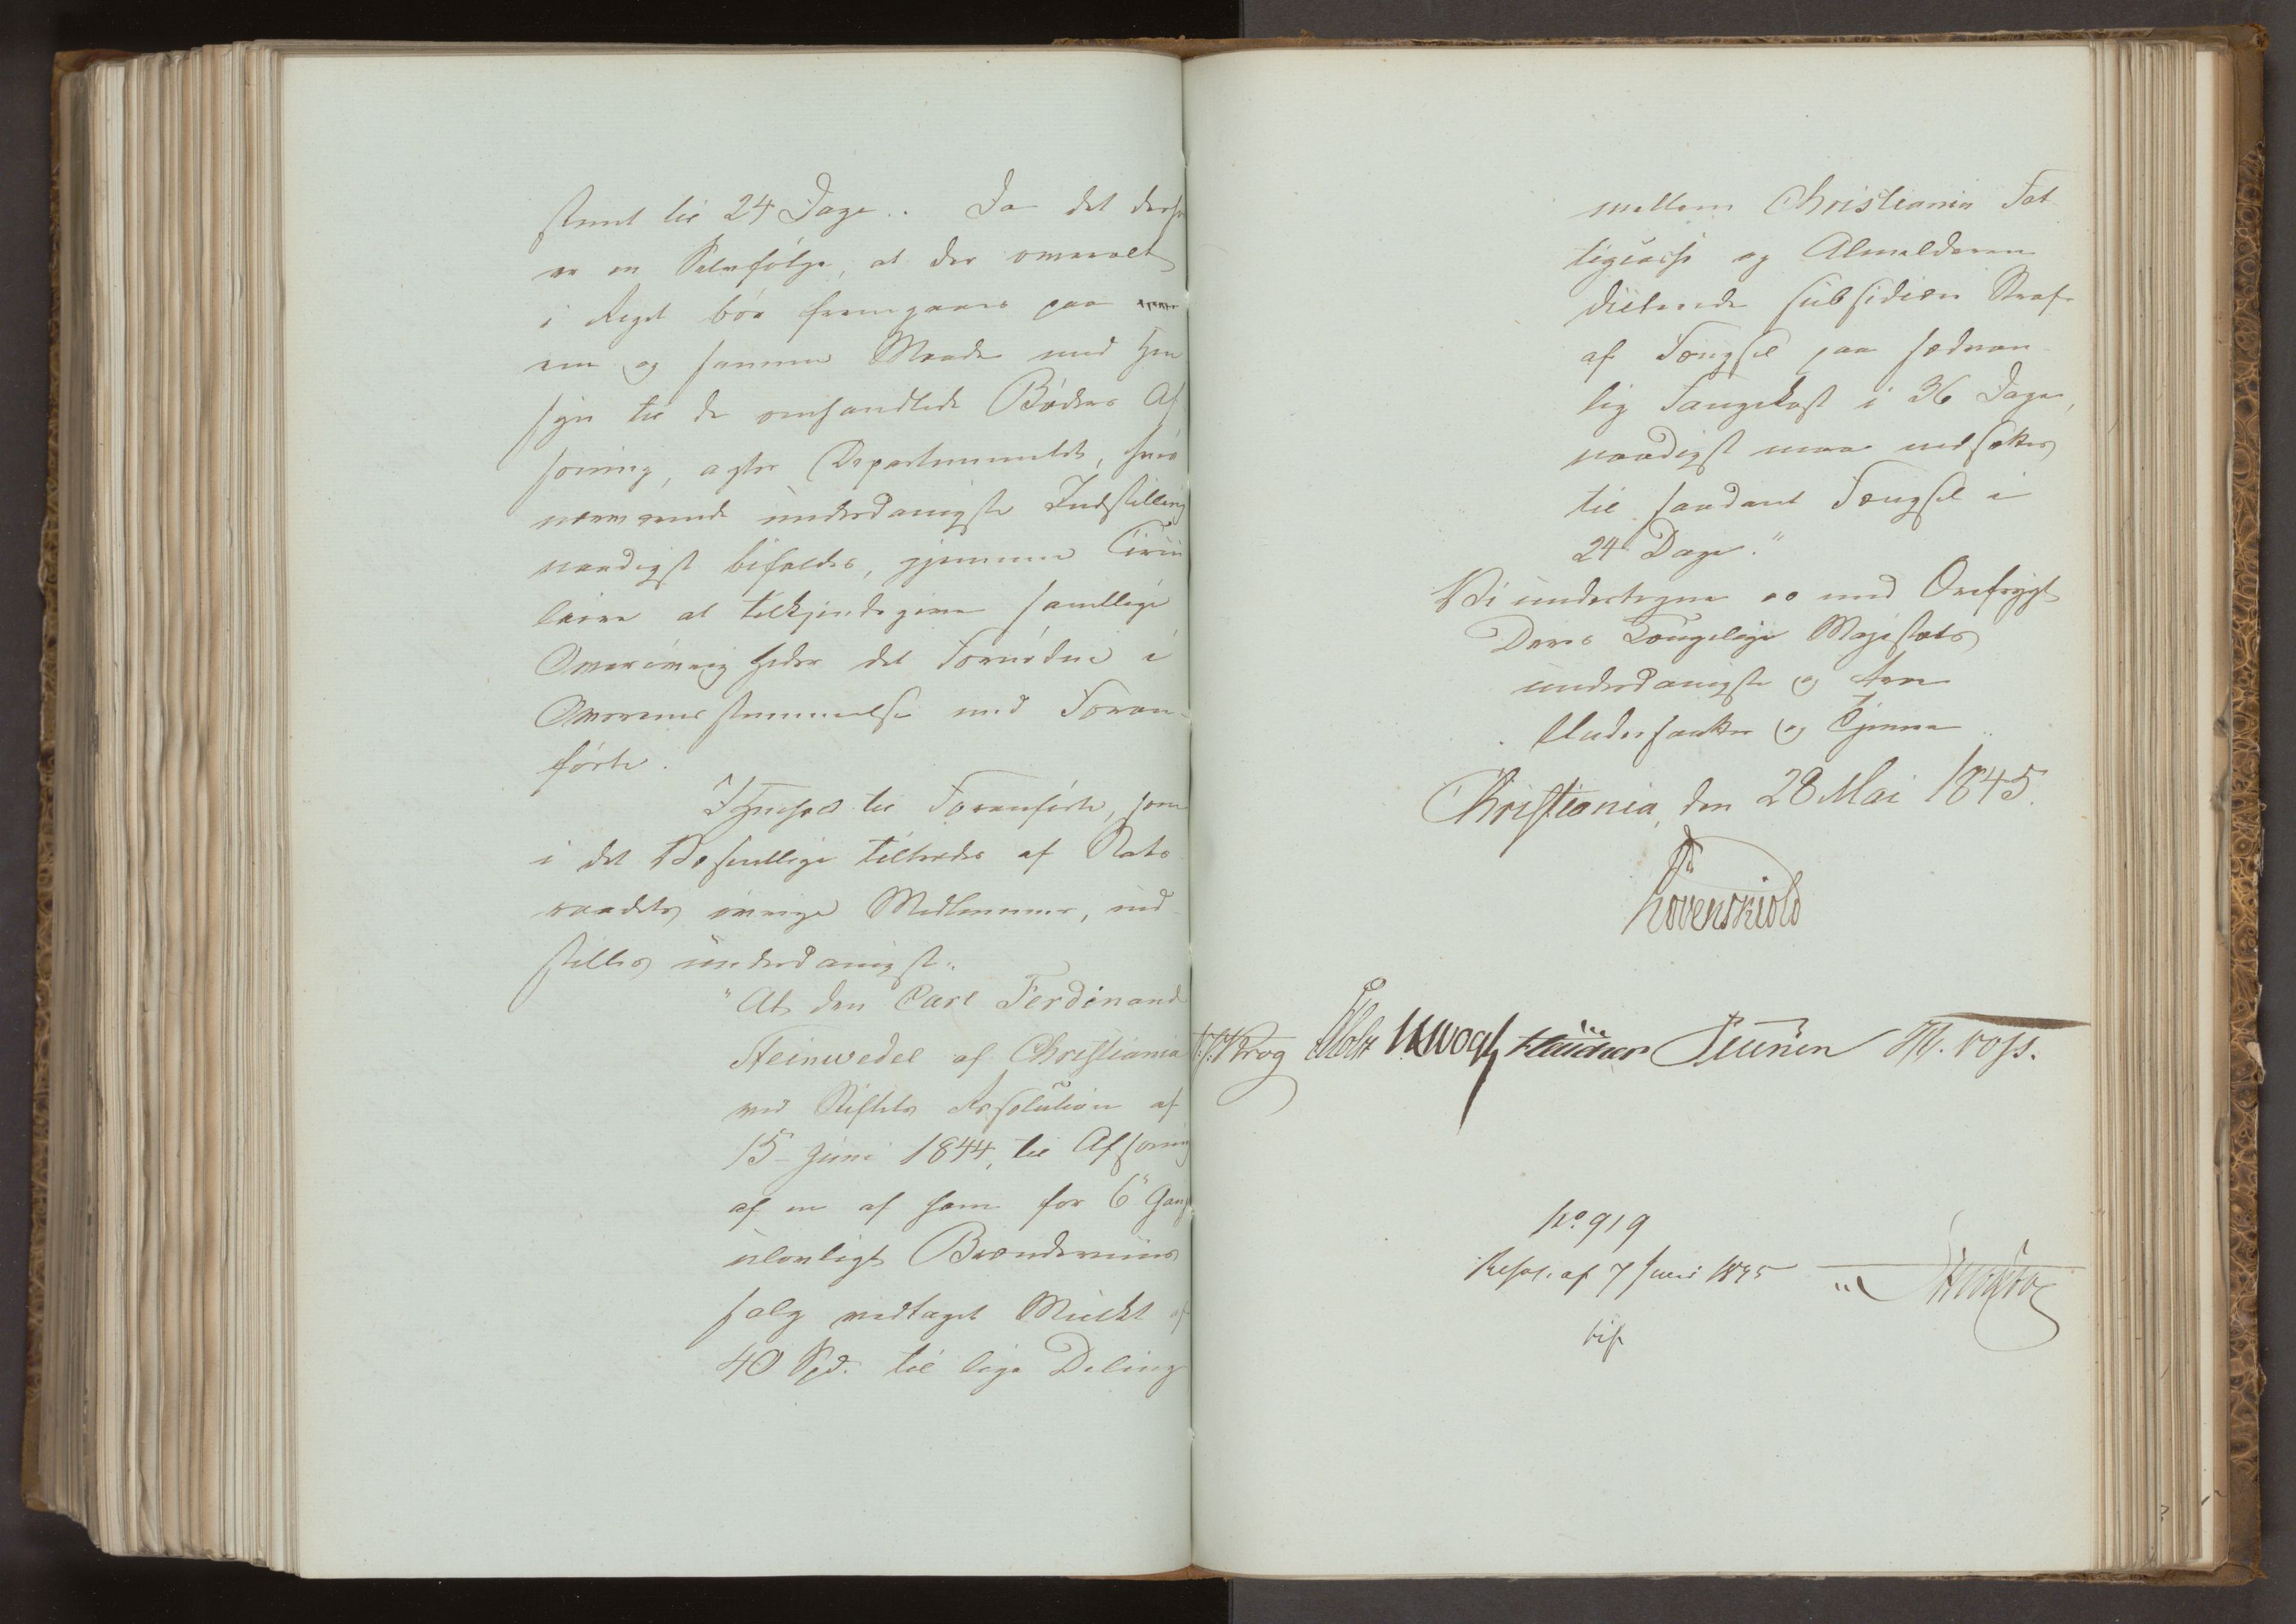 stemt til 24 Dage. Da det derhos
er en Selvfølge, at der overalt
i Riget bør fremgaaes paa
een og samme Maade med Hen
syn til de omhandlede Bøders Af
soning, agter Departementet, hvis
nærværende underdanigste Indstilling
naadigst bifaldes, gjennem Circu
laire at tilkjendegive samtlige
Overøvrigheder det Fornødne i
Overeensstemmelse med Foran-
førte.
I Henhold til Foranførte, som
i det Væsentlige tiltrædes af Stats
raadets øvrige Medlemmer, ind
stilles underdanigst:
"At den Carl Ferdinand
Steinwedel af Christiania
ved Stiftets Resolution af
15 Juni 1844, til Afsoning
af en af ham for 6te Gang
ulovligt Brændeviins
salg vedtaget Mulkt af
40 Spd. til lige Deling
mellem Christiania Fat
tigcasse og Anmelderen
dicterede subsidiære Straf
af Fængsel paa sædvan
lig Fangekost i 36 Dage,
naadigst maa nedsættes
til saadant Fængsel i
24 Dage."
Vi undertegne os med Ærefrygt
Deres Kongelige Majestæts
underdanigste og troe
Undersaatter og Tjenere
Christiania, den 28 Mai 1845.
Løvenskiold
Krog Holst Vogt Sibbern H. Foss.
No. 919
Resol. af 7 Juni 1845
bif.